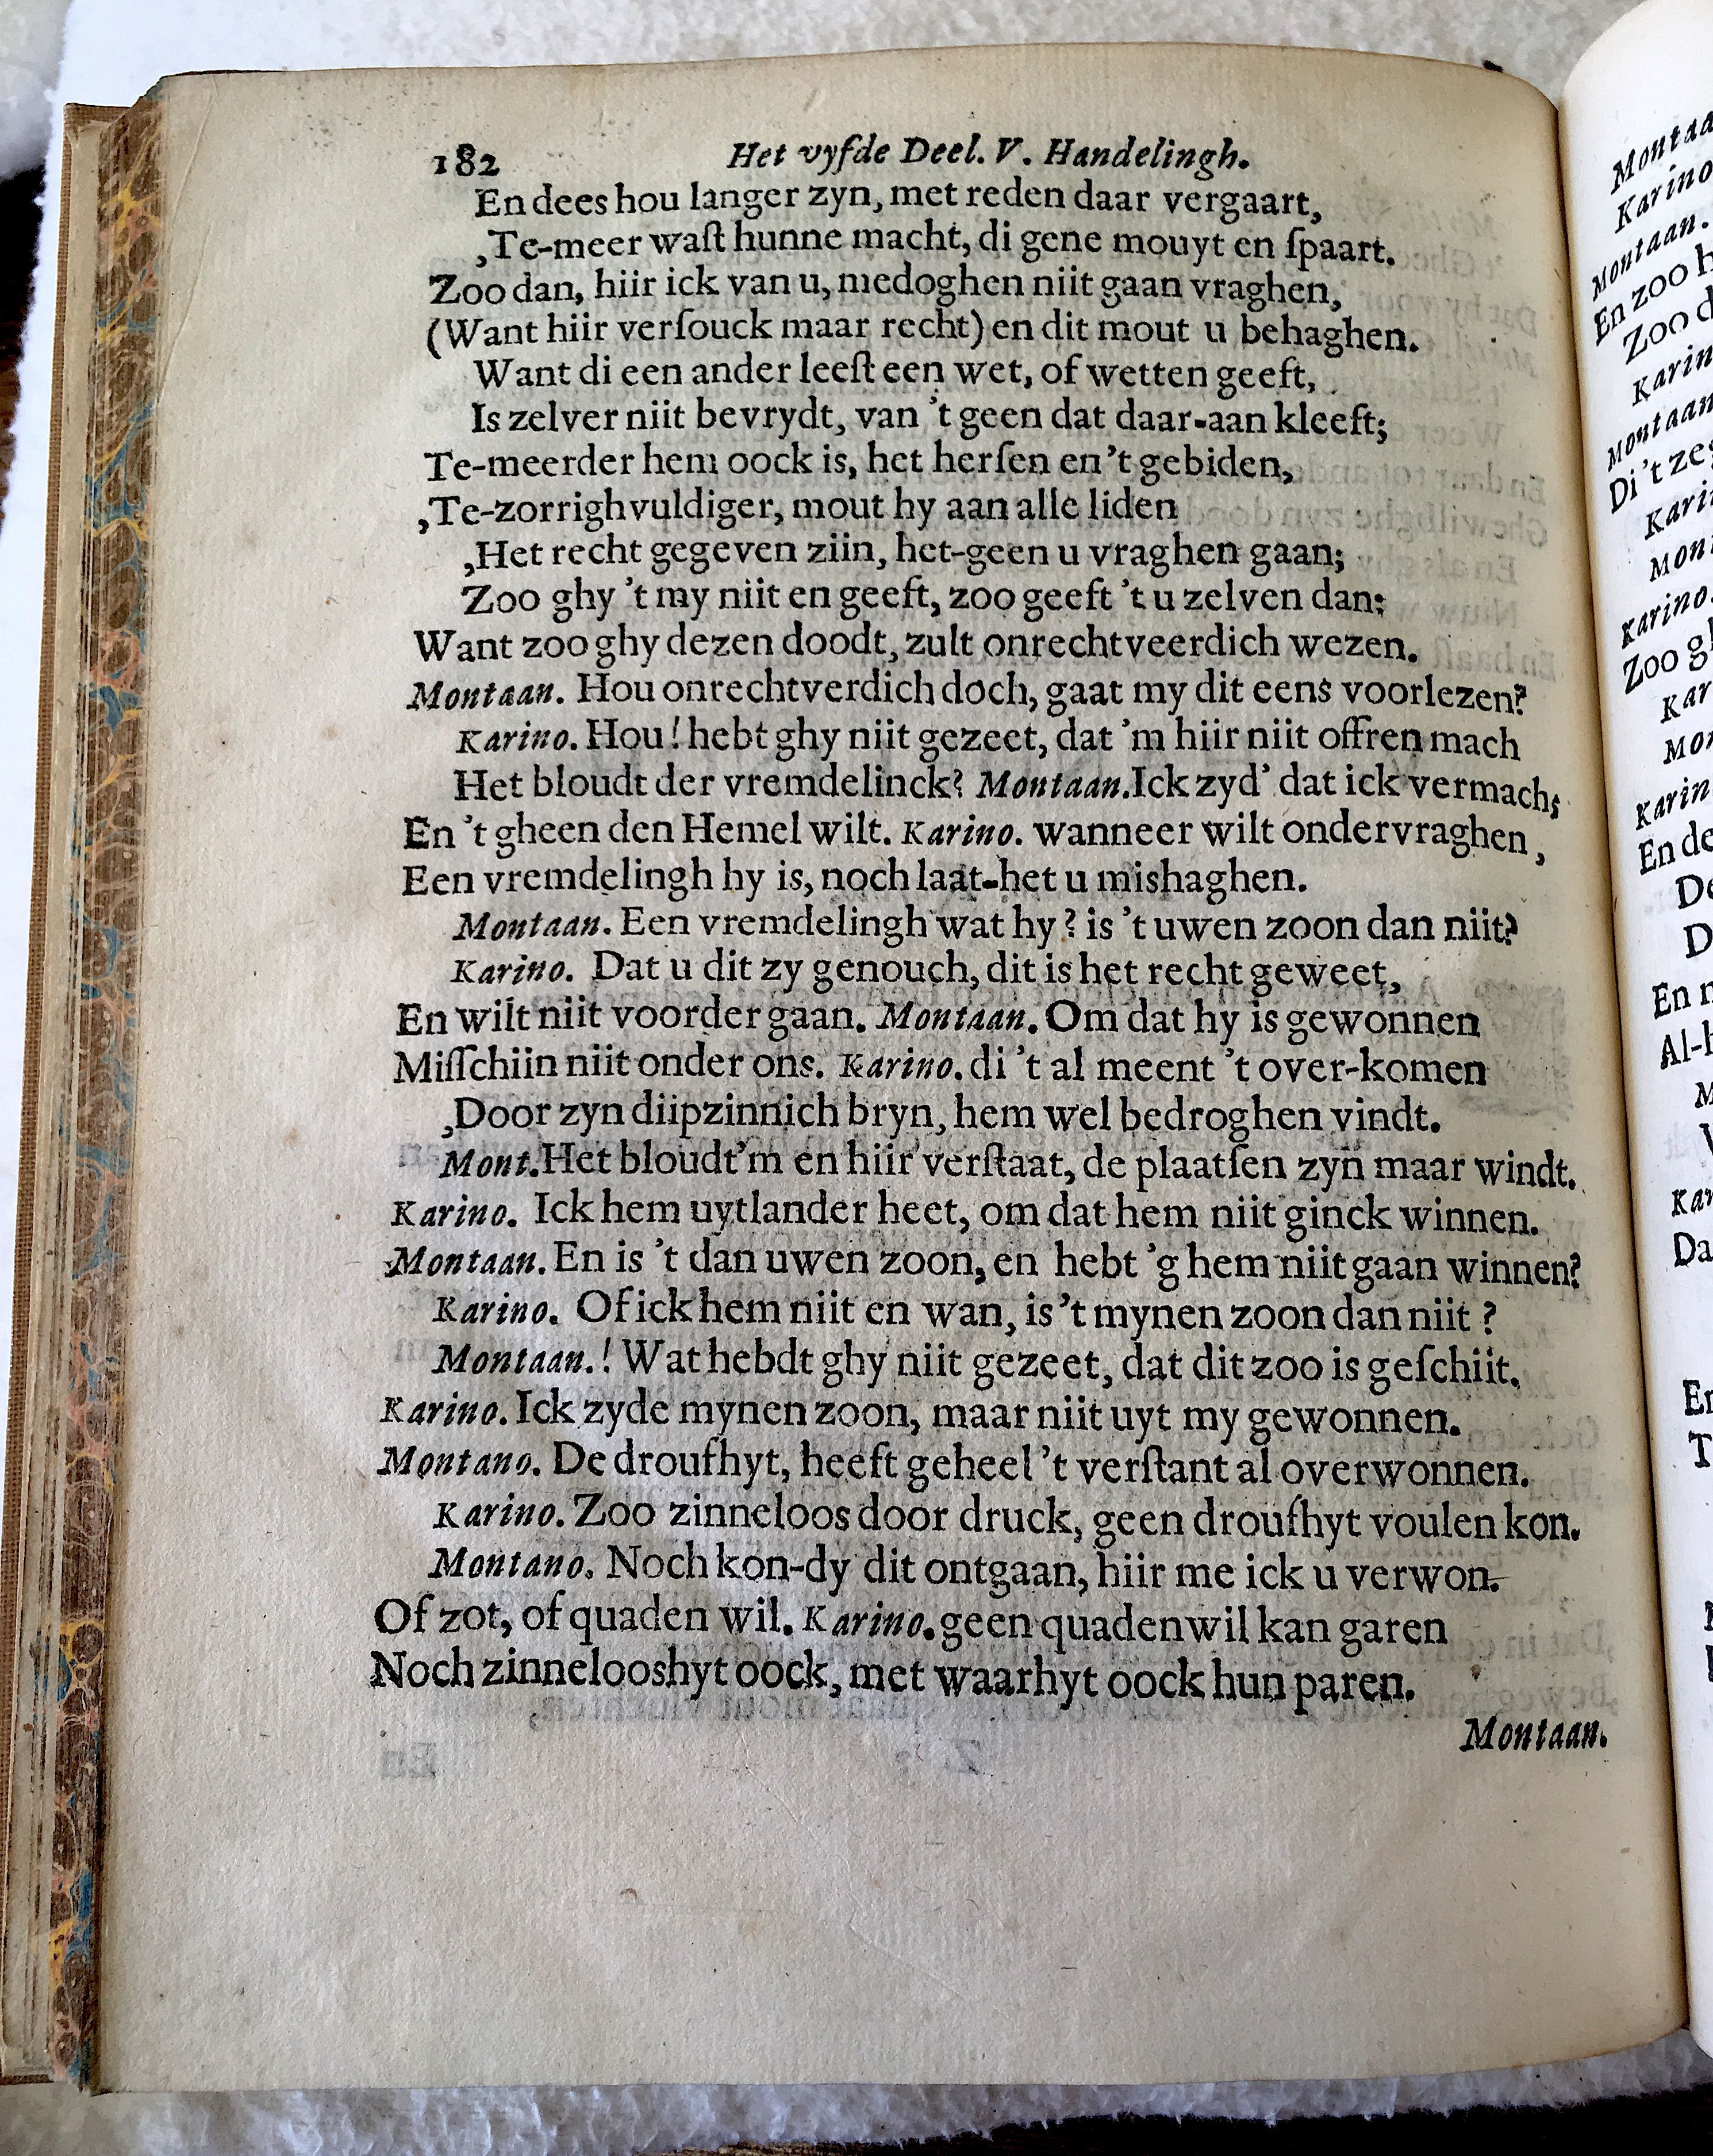 182 Het vyfde Deel. V. Handelingh.
En dees hou langer zyn, met reden daar vergaart,
,Te-meer waſt hunne macht, di gene mouyt en ſpaart.
Zoo dan, hiir ick van u, medoghen niit gaan vraghen,
(Want hiir verſouck maar recht) en dit mout u behaghen.
Want di een ander leeſt een wet, of wetten geeft,
Is zelver niit bevrydt, van 't geen dat daar-aan kleeft;
Te-meerder hem oock is, het herſen en 't gebiden,
,Te-zorrighvuldiger, mout hy aan alle liden
,Het recht gegeven ziin, het-geen u vraghen gaan;
Zoo ghy 't my niit en geeft, zoo geeft 't u zelven dan;
Want zoo ghy dezen doodt, zult onrechtveerdich wezen.
Montaan. Hou onrechtverdich doch, gaat my dit eens voorlezen?
Karino. Hou! hebt ghy niit gezeet, dat 'm hiir niit offren mach
Het bloudt der vremdelinck? Montaan. Ick zyd' dat ick vermach;
En 't gheen den Hemel wilt. Karino. wanneer wilt ondervraghen,
Een vremdelingh hy is, noch laat-het u mishaghen.
Montaan. Een vremdelingh wat hy? is 't uwen zoon dan niit?
Karino. Dat u dit zy genouch, dit is het recht geweet,
En wilt niit voorder gaan. Montaan. Om dat hy is gewonnen
Miſſchiin niit onder ons. Karino. di 't al meent 't over-komen
,Door zyn diipzinnich bryn, hem wel bedroghen vindt.
Mont. Het bloudt'm en hiir verſtaat, de plaatſen zyn maar windt.
Karino. Ick hem uytlander heet, om dat hem niit ginck winnen.
Montaan. En is 't dan uwen zoon, en hebt 'g hem niit gaan winnen?
Karino. Of ick hem niit en wan, is 't mynen zoon dan niit?
Montaan.! Wat hebdt ghy niit gezeet, dat dit zoo is geſchiit.
Karino. Ick zyde mynen zoon, maar niit uyt my gewonnen.
Montano. De droufhyt, heeft geheel 't verſtant al overwonnen.
Karino. Zoo zinneloos door druck, geen droufhyt voulen kon.
Montano. Noch kon-dy dit ontgaan, hiir me ick u verwon.
Of zot, of quaden wil. Karino. geen quaden wil kan garen
Noch zinnelooshyt oock, met waarhyt oock hun paren.
Montaan.
Montaa
Karino
Montaan.
En zoo h
Zoo d
Karin
Montaan
Di 't zeg
Karin
Mont
Karino.
Zoo gh
Kar
Mon
Karin
En de
De
D
En n
Al-h
M
V
Kar
Da
En
T